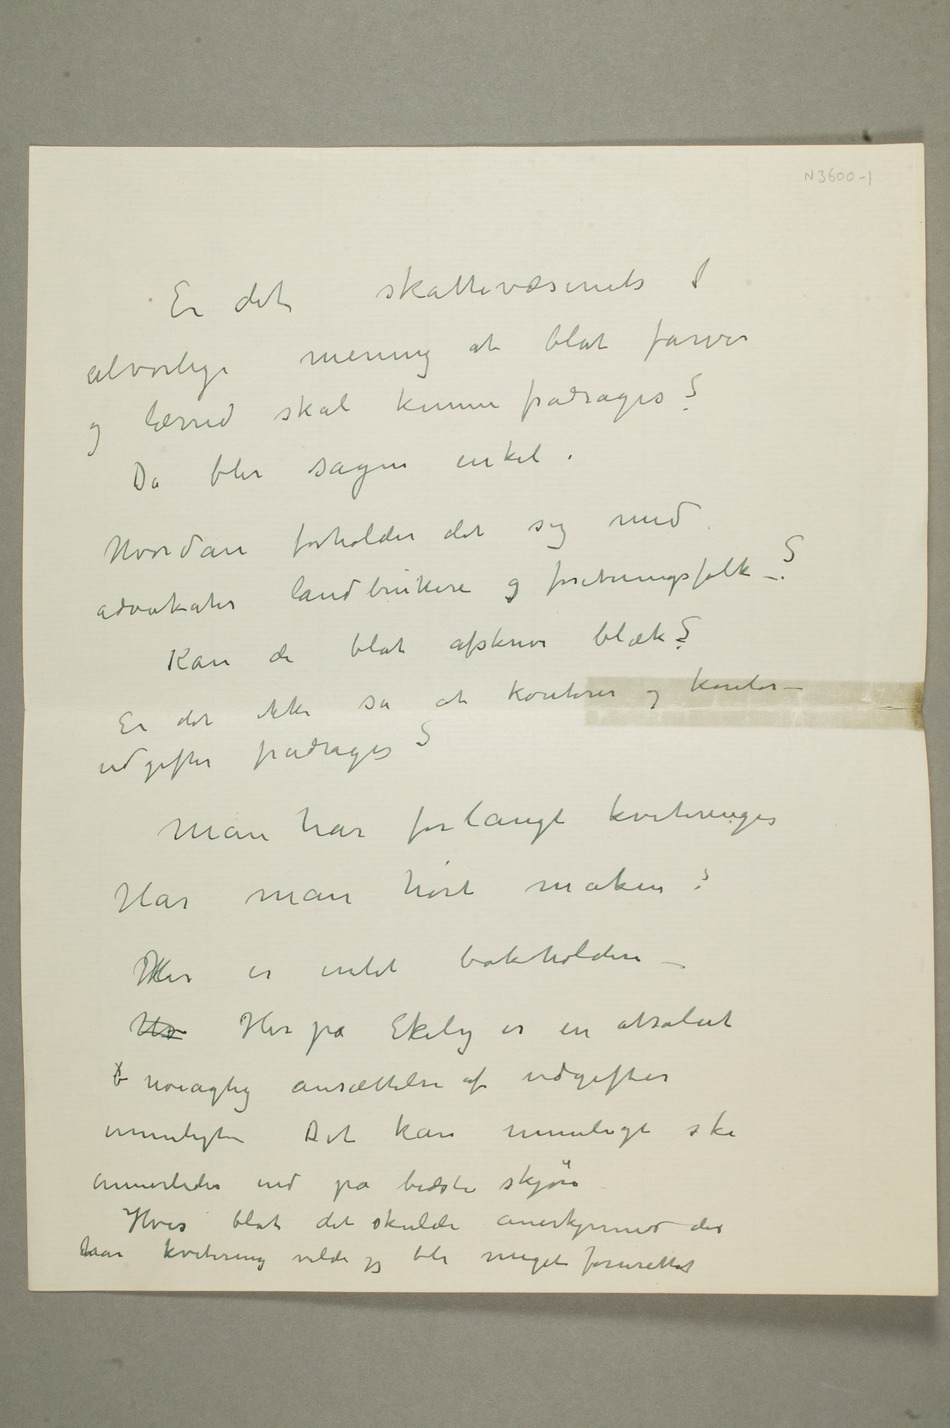 N3600-1
Er det skattevæsenets
alvorlige mening at blot farver
og lærred skal kunne fradrages?
Da blir sagen enkel.
Hvordan forholder det sig med
advokater landbrukere og foretningsfolk –?
Kan de blot afskrive blæk?
Er det ikke så at kontorer og kontor–
udgifter fradrages?
Man har forlangt kviteringer
Har man hørt maken?
Her er intet bokholderi –
Her på Ekely er en absolut
nøiagtig ansættelse af udgifter
umuligt Det kan umuligt ske
annerledes end på bedste skjøn
Hvis blot det skulde anerkjennes der
har kvitering vilde jeg bli meget forurettet